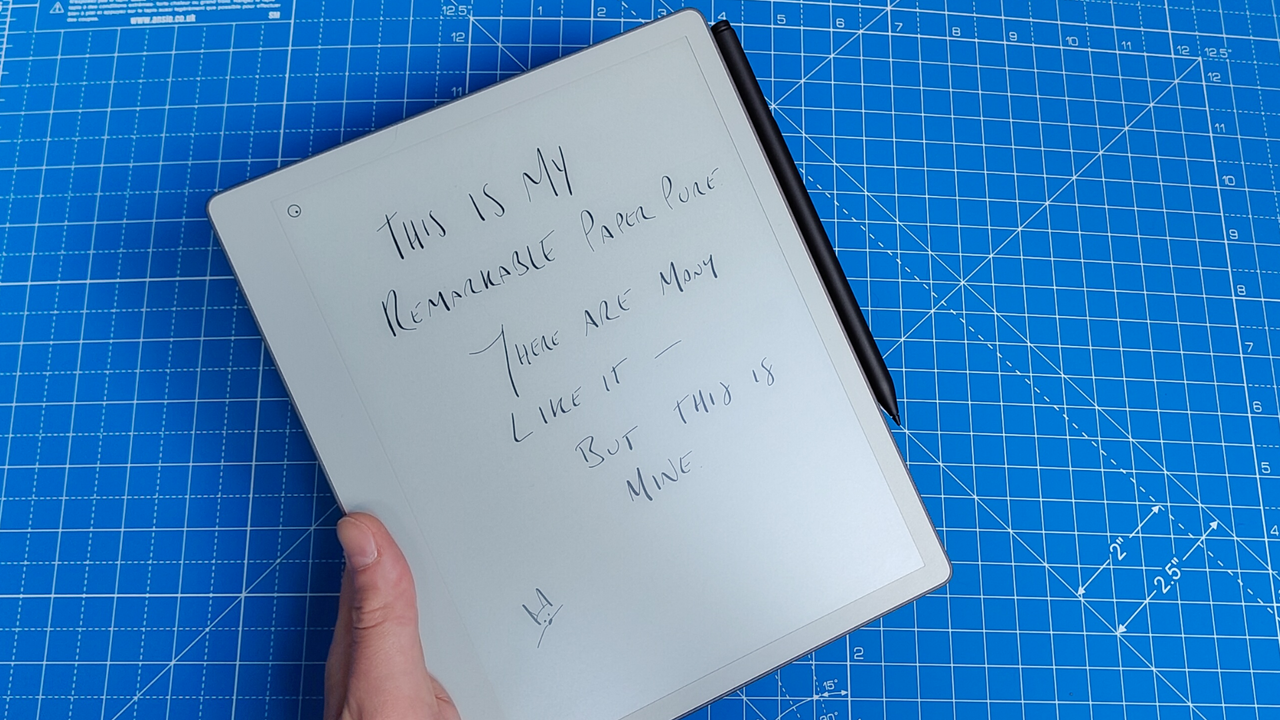 www.ansio.co.uk
THIS IS MY
REMARKABLE PAPER PURE
THERE ARE MANY
LIKE IT —
BUT THIS IS
MINE.
12.5"
12
11
1
2
3
4
5
6
7
8
9
10
11
12
12.5"
12
11
10
9
8
7
6
5
4
2"
2.5"
2
15°